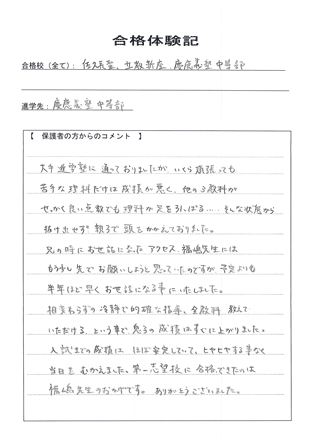 合格体験記
合格校(全て): 佐久長聖、立教新座、慶應義塾中等部
進学先: 慶應義塾中等部
【 保護者の方からのコメント 】
大手進学塾に通っておりましたが、いくら頑張っても
苦手な理科だけは成績が悪く、他の3教科が
せっかく良い点数でも理科が足を引っぱる…。そんな状態から
抜け出せず親子で頭をかかえておりました。
兄の時にお世話になったアクセス、福嶋先生には
もう少し先でお願いしようと思っていたのですが、予定よりも
半年ほど早くお世話になる事にいたしました。
相変わらずの冷静で的確な指導、全教科教えて
いただける、という事で、息子の成績はすぐに上がりました。
入試までの成績は、ほぼ安定していて、ヒヤヒヤする事なく
当日をむかえました。第一志望校に合格できたのは
福嶋先生のおかげです。ありがとうございました。